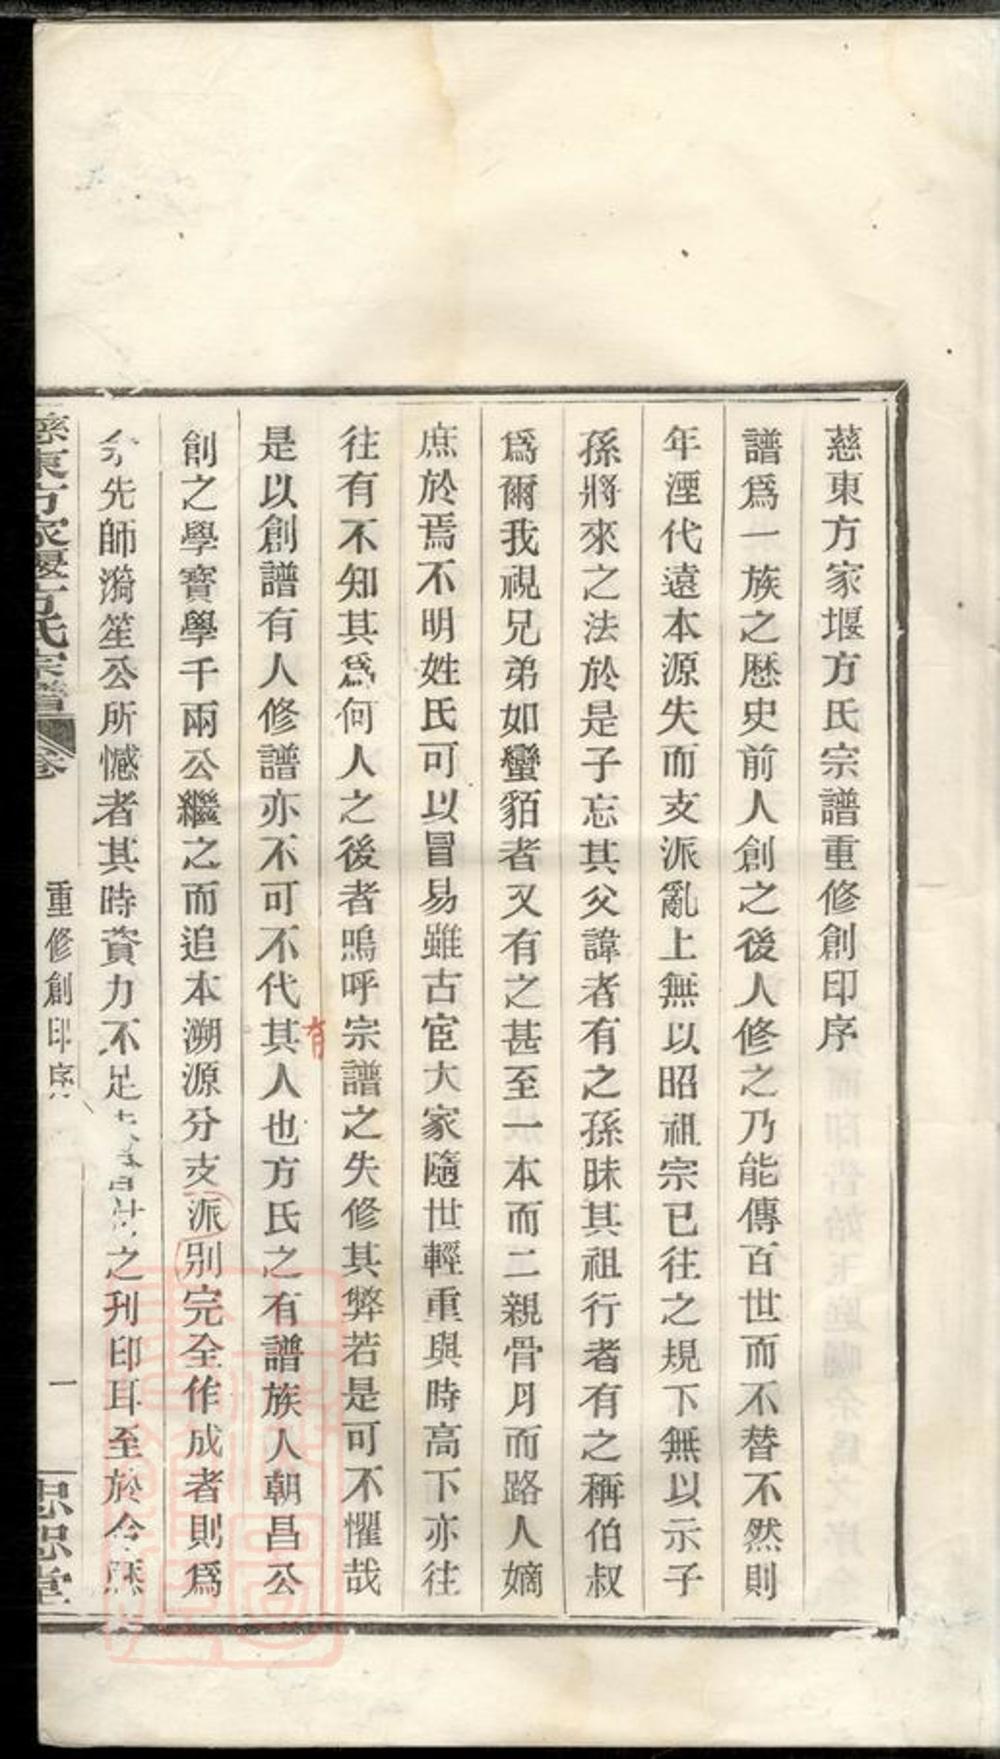 慈東方家堰方氏宗譜重修創印序
譜爲一族之歷史前人創之後人修之乃能傳百世而不替不然則
年湮代遠本源失而支派亂上無以昭祖宗已往之規下無以示子
孫將來之法於是子忘其父諱者有之孫昧其祖行者有之稱伯叔
爲爾我視兄弟如蠻貊者又有之甚至一本而二親骨月而路人嫡
庶於焉不明姓氏可以冒易雖古宦大家隨世輕重與時高下亦往
往有不知其爲何人之後者嗚呼宗譜之失修其弊若是可不懼哉
是以創譜有人修譜亦不可不代其人也方氏之有譜族人朝昌公
有
創之學寶學千兩公繼之而追本溯源分支派別完全作成者則爲
余先師漪笙公所憾者其時資力不足之刋印耳至於今
慈東方家堰方氏宗譜
卷
重修創印序
一
忠恕堂